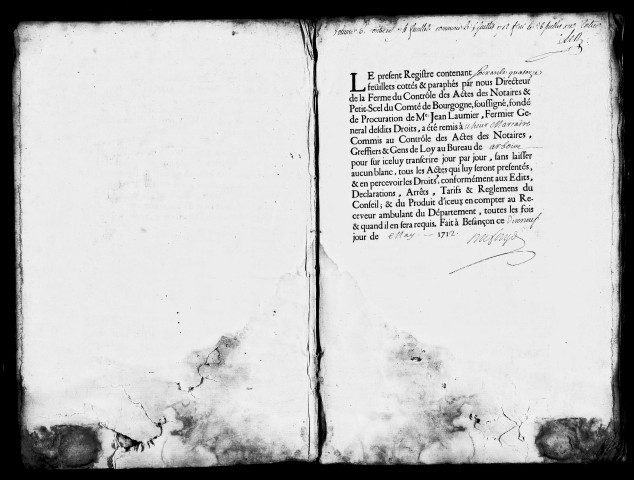 contenant feuillets commencé le juillet 1712 fini le 26 juillet
LE present Registre contenant soixante quatorze
feuillets cottés & paraphés par nous Directeur
de la Ferme du Contrôle des Actes des Notaires &
Petit-Scel du Comté de Bourgogne, soussigné, fondé
de Procuration de Me Jean Laumier, Fermier Ge-
neral desdits Droits, a été remis à
Commis au Contrôle des Actes des Notaires,
Greffiers & Gens de Loy au Bureau de arbois
pour sur iceluy transcrire jour par jour, sans laisser
aucun blanc, tous les Actes qui luy seront presentés,
& en percevoir les Droits, conformément aux Edits,
Declarations, Arrêts, Tarifs & Reglemens du
Conseil; & du Produit d'iceux en compter au Re-
ceveur ambulant du Département, toutes les fois
& quand il en sera requis. Fait à Besançon ce
jour de May 1712.